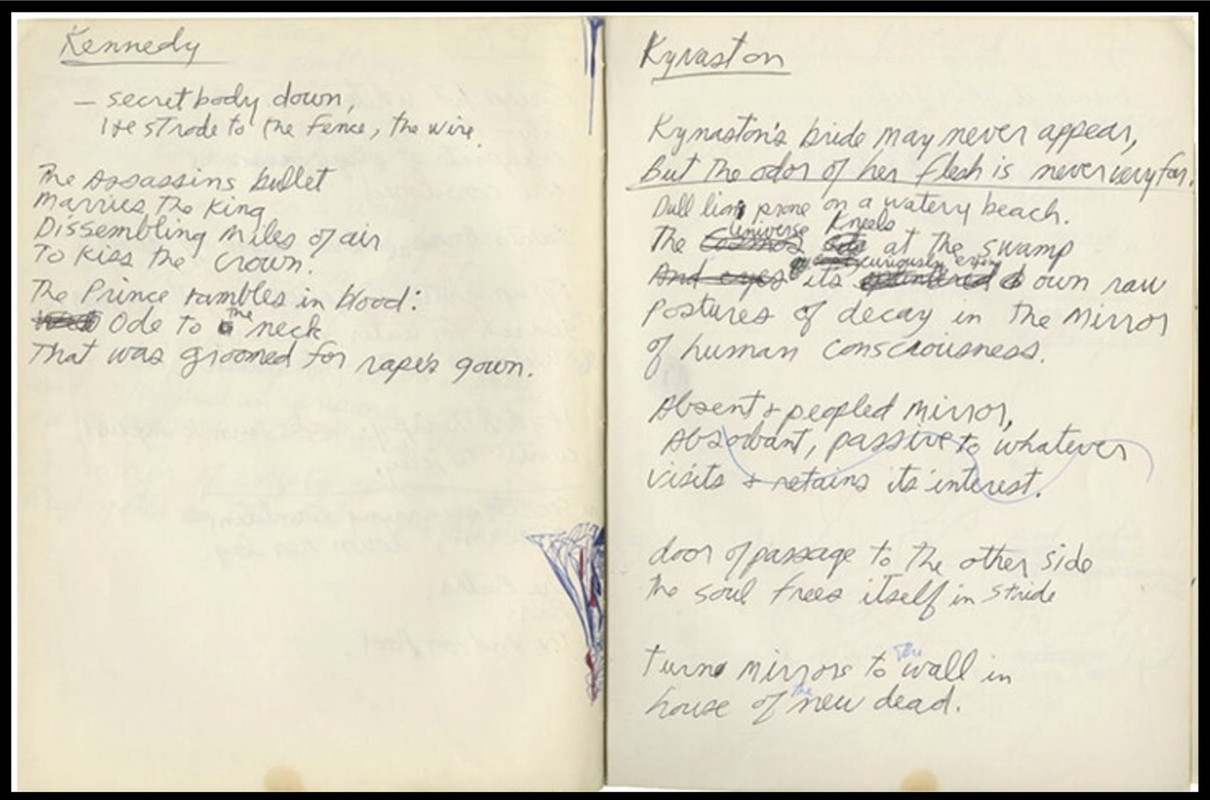 Kennedy
— secret body down,
He strode to the fence, the wire.
The Assassins bullet
Marries the King
Dissembling miles of air
To kiss the crown.
The Prince rambles in blood:
Ode to the neck
That was groomed for rape's gown.
Kynaston
Kynaston's bride may never appear,
But the odor of her flesh is never very far.
Dull lions prone on a watery beach.
The Cosmos Universe Kneels at the swamp
And eyes curiously eyeing its splintered own raw
postures of decay in the mirror
of human consciousness.
Absent & peopled mirror,
Absorbant, passive to whatever
visits & retains its interest.
door of passage to the other side
the soul frees itself in stride
Turn mirrors to the wall in
house of the new dead.